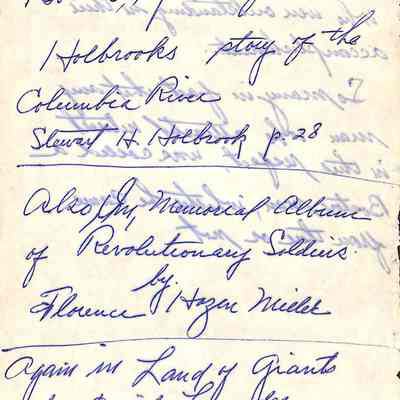 Holbrooks story of the
Columbia River
Stewart H. Holbrook p. 28
Also, In, Memorial Album
of Revolutionary Soldiers
by
Florence Hazen Miller
Again in Land of Giants